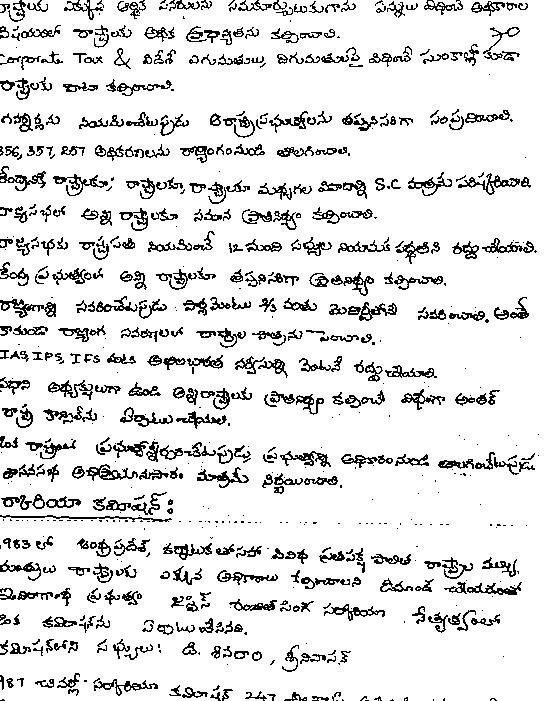 రాష్ట్రాలకు ఎక్కువ ఆర్థిక వనరులను సమకూర్చుటకుగాను పన్నులు విధించే అధికారాల
విషయంలో రాష్ట్రాలకు అధిక ప్రాధాన్యతను కల్పించాలి.
Corporate Tax & విదేశీ ఎగుమతులు, దిగుమతులపై విధించే సుంకాల్లో కూడా
రాష్ట్రాలకు వాటా కల్పించాలి.
గవర్నర్లను నియమించేటప్పుడు ఆ రాష్ట్రప్రభుత్వాలను తప్పనిసరిగా సంప్రదించాలి.
356, 357, 257 అధికరణలను రాజ్యాంగంనుండి తొలగించాలి.
కేంద్రానికి రాష్ట్రాలకూ, రాష్ట్రాలకు, రాష్ట్రాలకూ మధ్యగల వివాదాన్ని S.C మాత్రమే పరిష్కరించాలి
రాజ్యసభలో అన్ని రాష్ట్రాలకూ సమాన ప్రాతినిధ్యం కల్పించాలి.
రాజ్యసభకు రాష్ట్రపతి నియమించే 12 మంది సభ్యుల నియామక పద్ధతిని రద్దు చేయాలి.
కేంద్ర ప్రభుత్వంలో అన్ని రాష్ట్రాలకూ తప్పనిసరిగా ప్రాతినిధ్యం కల్పించాలి.
రాజ్యాంగాన్ని సవరించేటప్పుడు పార్లమెంటు 2/3 వంతు మెజార్టీతోనే సవరించాలి. అంతే
కాకుండా రాజ్యాంగ సవరణలలో రాష్ట్రాల పాత్రను పెంచాలి.
IAS, IPS, IFS వంటి అఖిలభారత సర్వీసుల్ని వెంటనే రద్దు చేయాలి.
ప్రధాని అధ్యక్షులుగా ఉండి అన్నిరాష్ట్రాలకు ప్రాతినిధ్యం కల్పించే విధంగా అంతర్
రాష్ట్ర కౌన్సిల్‌ను ఏర్పాటు చేయాలి.
ఒక రాష్ట్రంలో ప్రభుత్వాన్ని ప్రభుత్వాన్ని అధికారంనుండి తొలగించేటప్పుడు
శాసనసభ అభిప్రాయానుసారం మాత్రమే నిర్ణయించాలి.
సర్కారియా కమీషన్ :
1983 లో ఆంధ్రప్రదేశ్, కర్ణాటక తోసహా వివిధ ప్రతిపక్ష పాలిత రాష్ట్రాల ముఖ్య
మంత్రులు రాష్ట్రాలకు ఎక్కువ అధికారాలు కల్పించాలని డిమాండ్ చేయడంతో
ఇందిరాగాంధీ ప్రభుత్వం జస్టిస్ రంజిత్ సింగ్ సర్కారియా నేతృత్వంలో
ఒక కమీషన్‌ను ఏర్పాటు చేసినది.
కమీషన్‌లోని సభ్యులు: బి. శివరాం, శ్రీనివాసన్
1987 సర్కారియా కమీషన్ 247